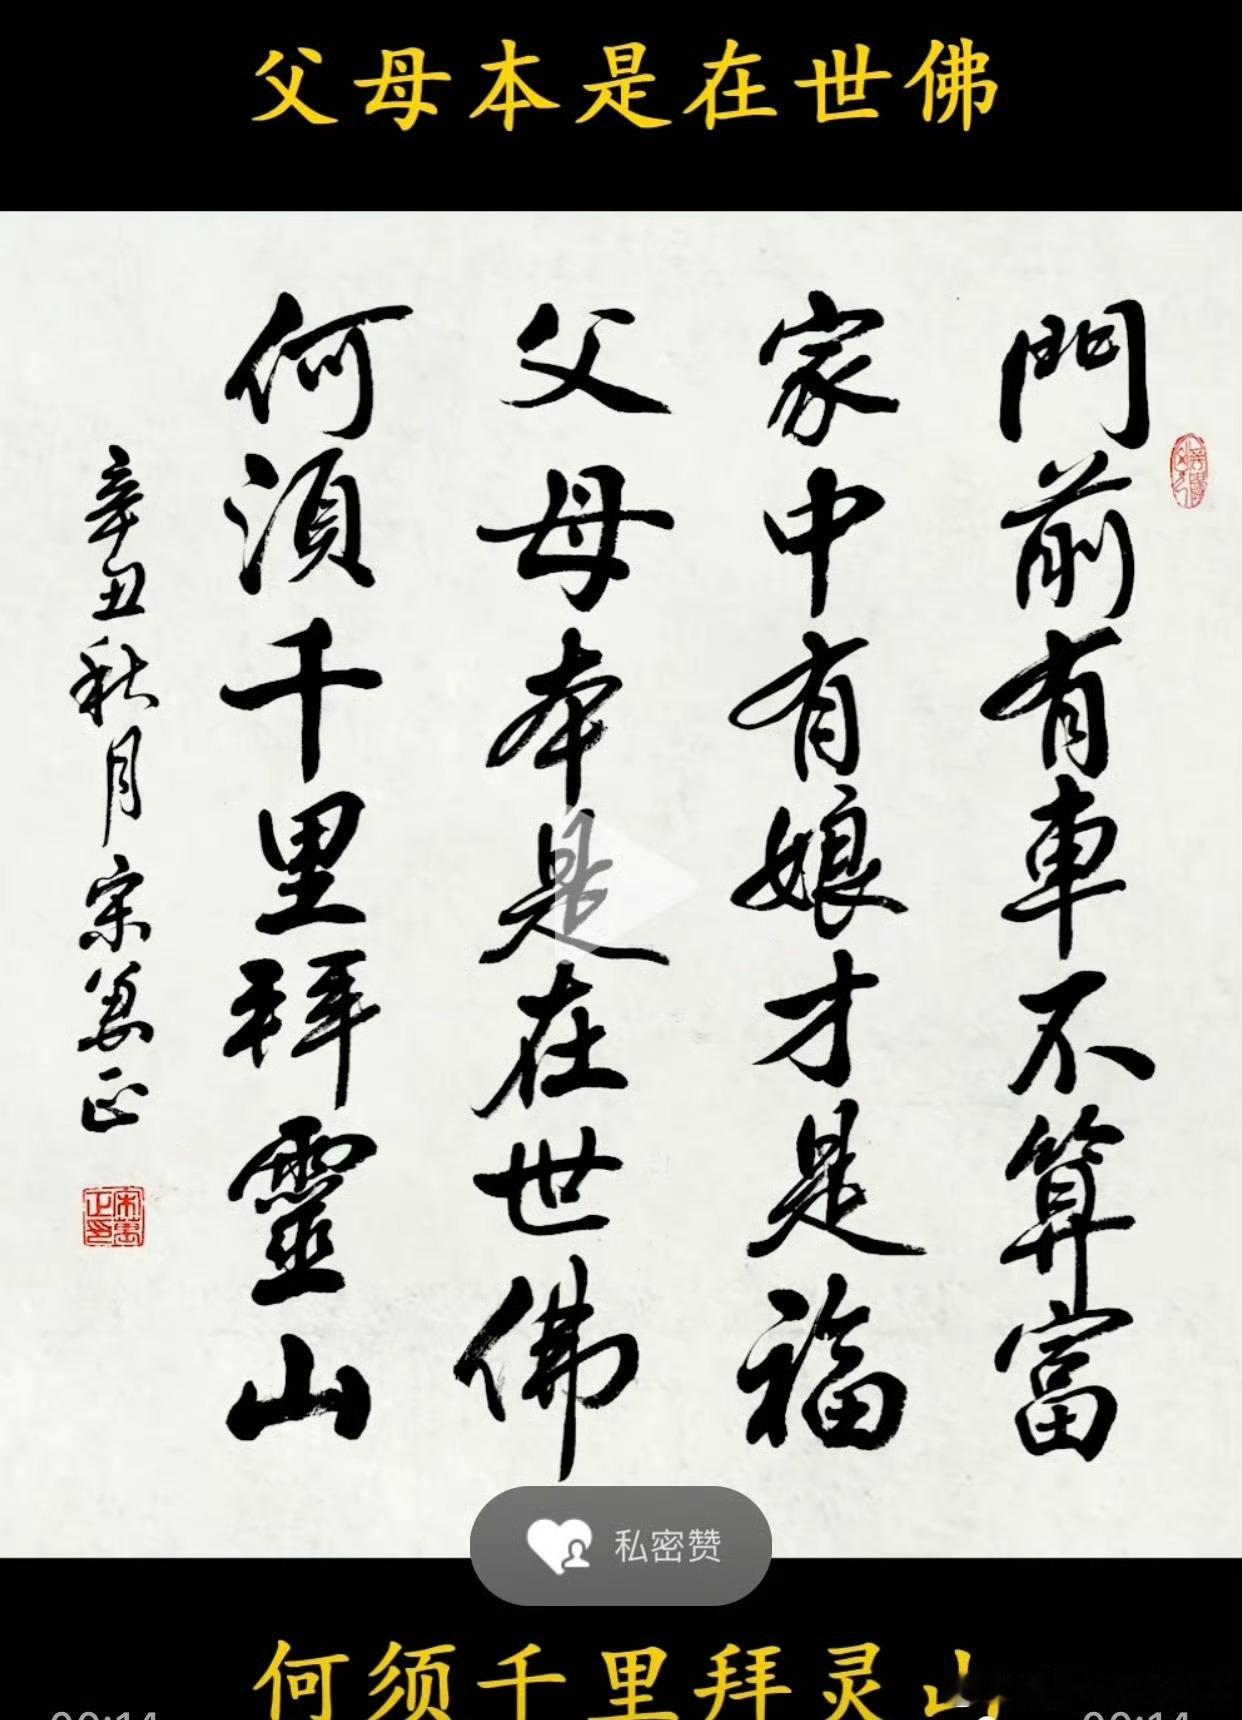 父母本是在世佛
門前有車不算富
家中有娘才是福
父母本是在世佛
何須千里拜靈山
辛丑秋月宋萬正
宋萬正印
私密赞
何须千里拜灵山
00:14
00:14